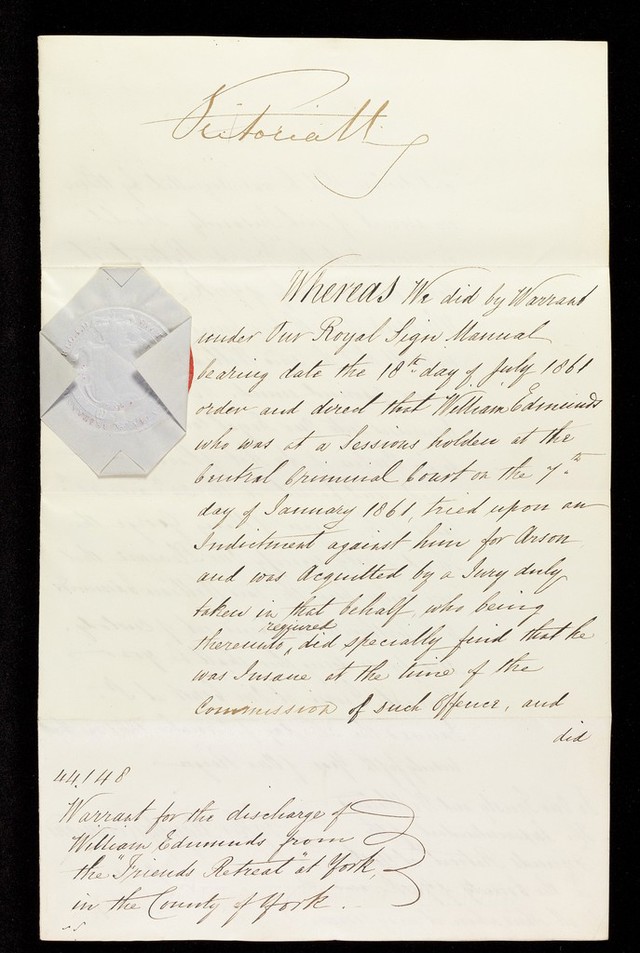 Victoria R
Whereas We did by Warrant
under Our Royal Sign Manual
bearing date the 18th day of July 1861
order and direct that William Edmunds
who was at a Sessions holden at the
Central Criminal Court on the 7th
day of January 1861, tried upon an
Indictment against him for Arson
and was Acquitted by a Jury duly
taken in that behalf, who being
required
thereunto, did specially find that he
was Insane at the time of the
Commission of such Offence, and
did
44148
Warrant for the discharge of
William Edmunds from
the "Friends Retreat" at York,
in the County of York.